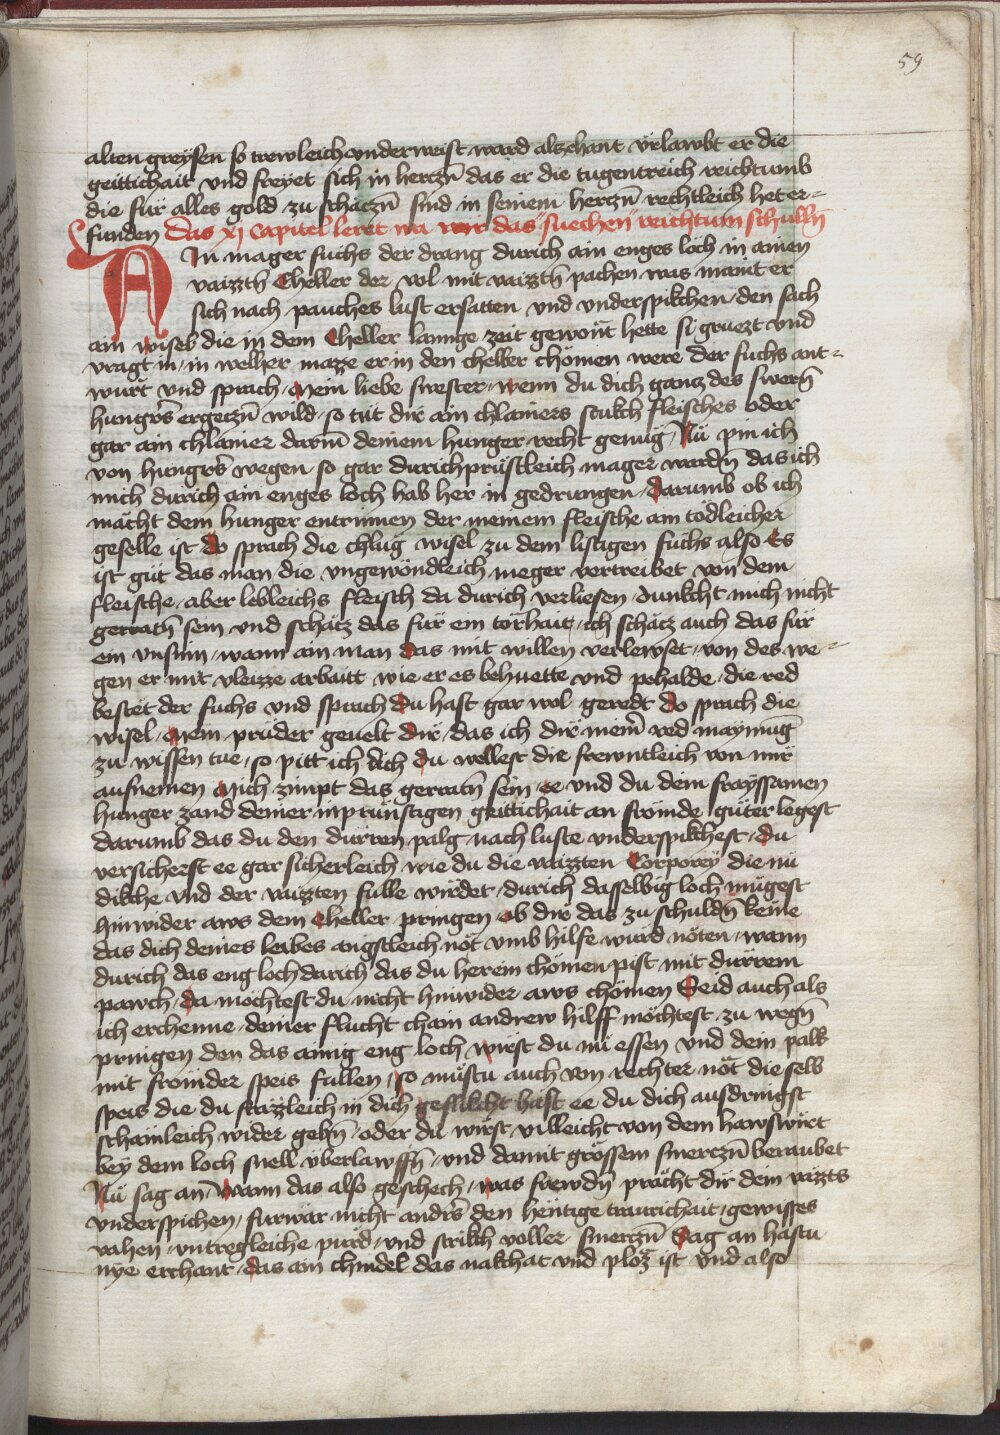 59
alten greÿsen so trewleich vnderweist ward alzehant vrlawbt er die
geittichait vnd freyet sich in herczn̄ das er die tugentreich reichtumb
die für alles gold zu schaczn̄ sind in seinem herczn̄ rechtleich het er⸗
funden das xj capitel leret wa wir das suechen reichtum schulln̄
AIn mager fuchs der drang durich ain enges loch in ainen
vaizztn̄ Cheller der vol mit vaizztn̄ pachen was maint er
sich nach pauches lust ersatten vnd vnderspikchen den sach
ain wisel die in dem Cheller lannge zeit gewont hette si gruezt vnd
vragt in in welher mazze er in den cheller chömen were der fuchs ant⸗
wurt vnd sprach Mein liebe swester wenn du dich ganz des swern̄
hungers ergeczn̄ wild so tut dir ain chlaines stukch fleisches oder
gar ain chlainer darm̄ deinem hunger recht genug Nü pin ich
von hungers wegen so gar durichprüstleich mager wardn̄ das ich
mich durich ain enges loch hab her in gedrungen darumb ob ich
mächt dem hunger entrinnen der meinem fleische ain tödleicher
geselle ist do sprach die chlug wisel zu dem listigen fuchs also Es
ist güt das man die vngewöndleich meger vertreibet von dem
fleische aber lebleichs fleisch da durich verliesen dunkcht mich nicht
geratn̄ sein vnd schätz das für ein törhait ich schätz auch das für
ein vnsinn wann ain man das mit willen verlewset von des we⸗
gen er mit vleizze arbaitt wie er es behuette vnd pehalde die red
bestët der fuchs vnd sprach du hast gar wol geredt do sprach die
wisel Mein prüder geuelt dir das ich dir mein̄ red maynung
zu wissen tue so pitt ich dich du wellest die frewntleich von mir
aufnemen Mich zimpt das geratn̄ sein ee vnd du dein frayssamen
hunger zand deiner inprünstigen geittichait an frömde güter legest
darumb das du den dürren palg nach luste vnderspikchest du
versicherst ee gar sicherleich wie du die vaizzten Corporey die nü
dikche vnd der vaizten fulle wirdet durich dasselbig loch mügest
hinwider aws dem Cheller pringen ob dir das zu schuldn̄ keme
das dich deines leibes angstleich nöt vmb hilfe würd nöten wann
durich das eng loch darich das du herein chömen pist mit dürrem
pawch da möchtest du nicht hinwider aws chömen Seid auch als
ich erchenne deiner flucht chain andrew hilff möchtest zu wegn̄
pringen den das ainig eng loch wirst du nü essen vnd dein palk
mit frömder speis fullen so müstu auch von rechter nöt die selb
speis die du fräzleich in dich geslikcht hast ee du dich ausdringst
schainleich wider gebn̄ oder du wirst villeicht von dem hawswirt
bey dem loch snell vberlawffn̄ vnd damit grössem smerczn̄ beraubet
Nü sag an Wann das also geschech was frewdn̄ prächt dir dein vaizts
vnderspichen fürwar nicht andrs den hëutige traurichait gewisses
vahen vntregleiche pürd vnd strikch voller smerczn̄ Sag an hastu
nye erchant das ain chindel das nakchat vnd plöz ist vnd also